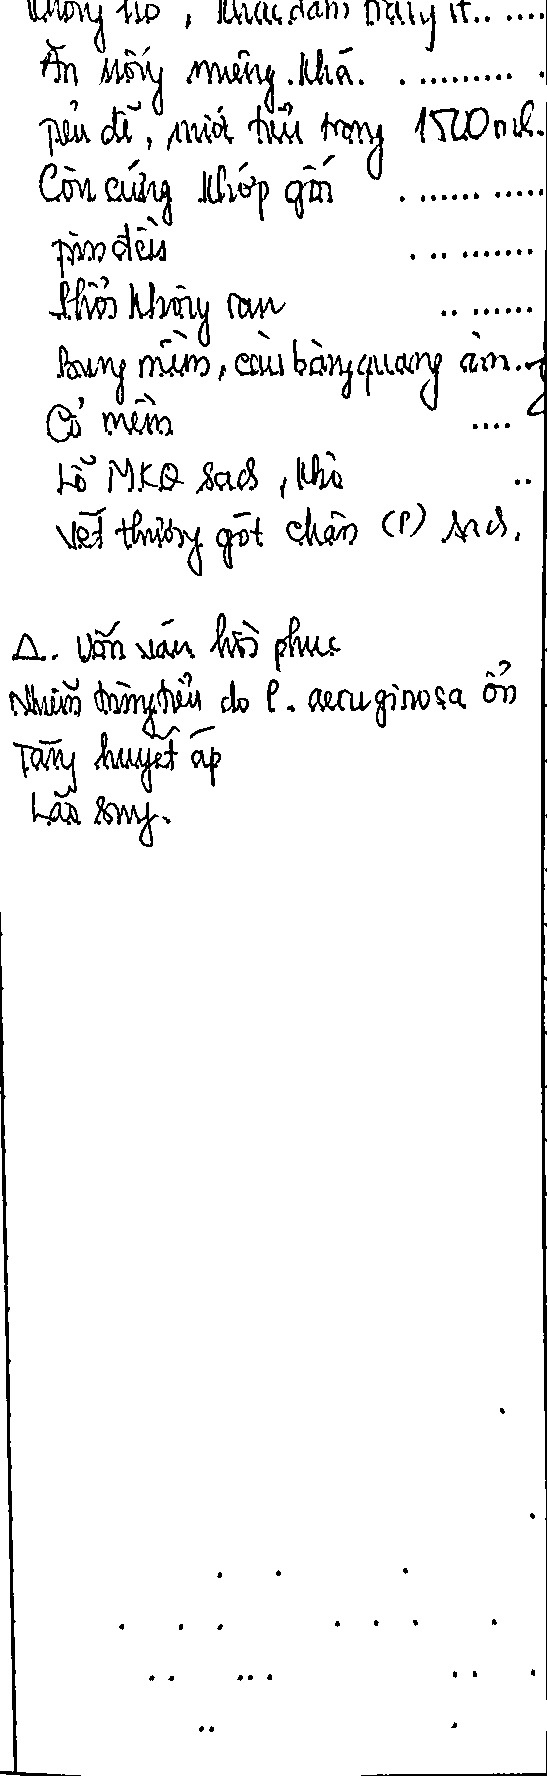 Không ho, khạc đàm trắng ít
Ăn uống miệng khá.
Tiểu dễ, nước tiểu trong 1500ml.
Còn cứng khớp gối
Tim đều
Phổi không ran
Bụng mềm, cầu bàng quang âm.
Cổ mềm
Lỗ MKQ sạch, khô
Vết thương gót chân (P) sạch.
Δ. Viêm não hồi phục
Nhiễm trùng tiểu do P. aeruginosa ổn
Tăng huyết áp
Lão suy.